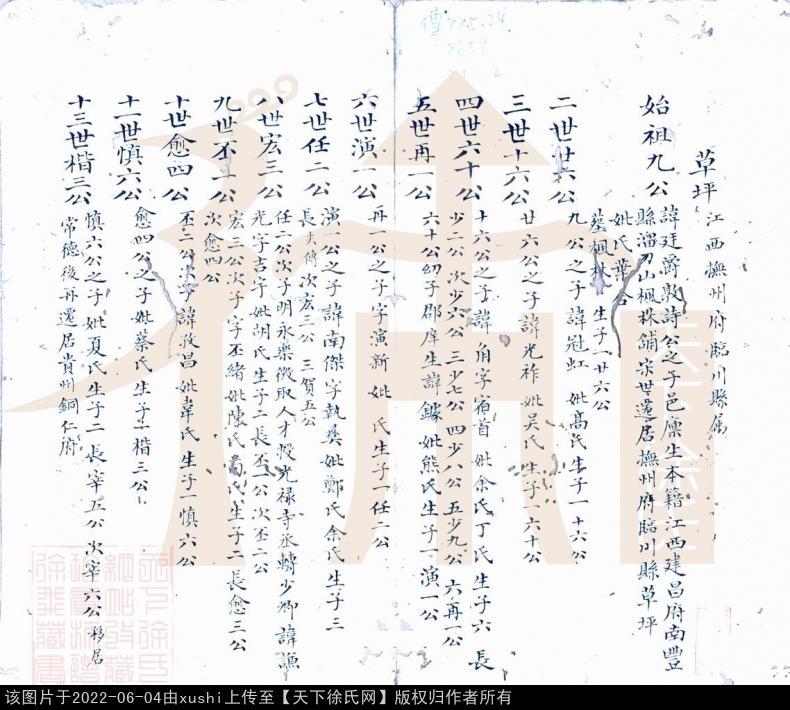 草坪 江西撫州府臨川縣属
始祖九公 諱廷爵敦詩公之子邑廪生本籍江西建昌府南豐
縣溜刀山楓株舖宋世遷居撫州府臨川縣草坪
妣氏葉合
墓楓林 生子一廿六公
二世廿六公 九公之子諱冠虹 妣髙氏生子一十六公
三世十六公 廿六公之子諱光祚妣吴氏生子一六十公
四世六十公 十六公之子諱角字宿首 妣余氏丁氏生子六 長
少二公 次少六公 三少七公 四少八公 五少九公 六再一公
五世再一公 六十公幼子郡庠生諱鑢妣熊氏生子一演一公
六世演一公 再一公之子字演新 妣 氏生子一任二公
七世任二公 演一公之子諱南傑字執彞妣鄭氏余氏生子三
長失傳 次宏三公 三賀五公
八世宏三公 任二公次子明永樂徴取人才授光禄寺丞轉少卿諱漁
光字吉宇妣胡氏生子二長丕一公次丕二公
九世丕一公 宏三公次子字丕緒妣陳氏 氏生子二長愈三公
次愈四公
十世愈四公 丕二公次子諱孜昌妣韋氏生子一慎六公
十一世慎六公 愈四公之子妣蔡氏生子一楷三公
十三世楷三公 慎六公之子妣夏氏生子二長宰五公次宰六公移居
常德後再遷居貴州銅仁府
傳775.24
8659
天下徐氏
網站收藏
徐斐藏書
该图片于2022-06-04由xushi上传至【天下徐氏网】版权归作者所有